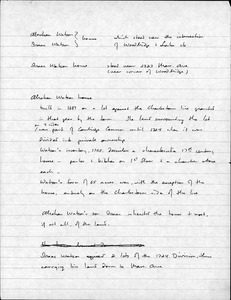 Abraham Watson } house which stood near the intersection
Isaac Watson of Woodbridge & Locke sts
Isaac Watson home stood near 2203 Mass. Ave
(near corner of Woodbridge)
Abraham Watson home
built in 1687 on a lot against the Charlestown line granted
The land surrounding the lot
was part of Cambridge Common until 1724 when it was
divided into private ownership
Watson's inventory, 1705. describes a characteristic 17th century
house - parlor & kitchen on 1st floor & a chamber above
each
Watson's farm of 55 acres was, with the exception of the
house, entirely on the Charlestown side of the line
Abraham Watson's son Isaac inherited the house & most,
if not all, of the land.
Isaac Watson acquired 2 lots of the 1724 Division, thus
carrying his land down to Mass Ave